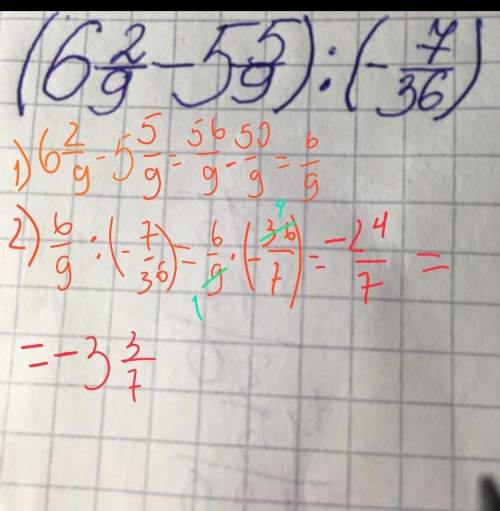 (6 2/9 - 5 5/9) : (- 7/36)
1) 6 2/9 - 5 5/9 = 56/9 - 50/9 = 6/9
2) 6/9 : (- 7/36) = 6/9 1 · (- 36/7) 4 = -24/7 =
= -3 3/7